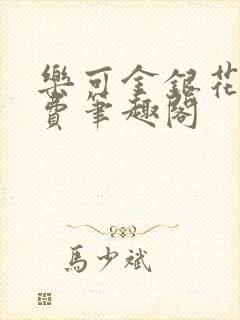 樂可金銀花
費筆趣閣
馬少斌